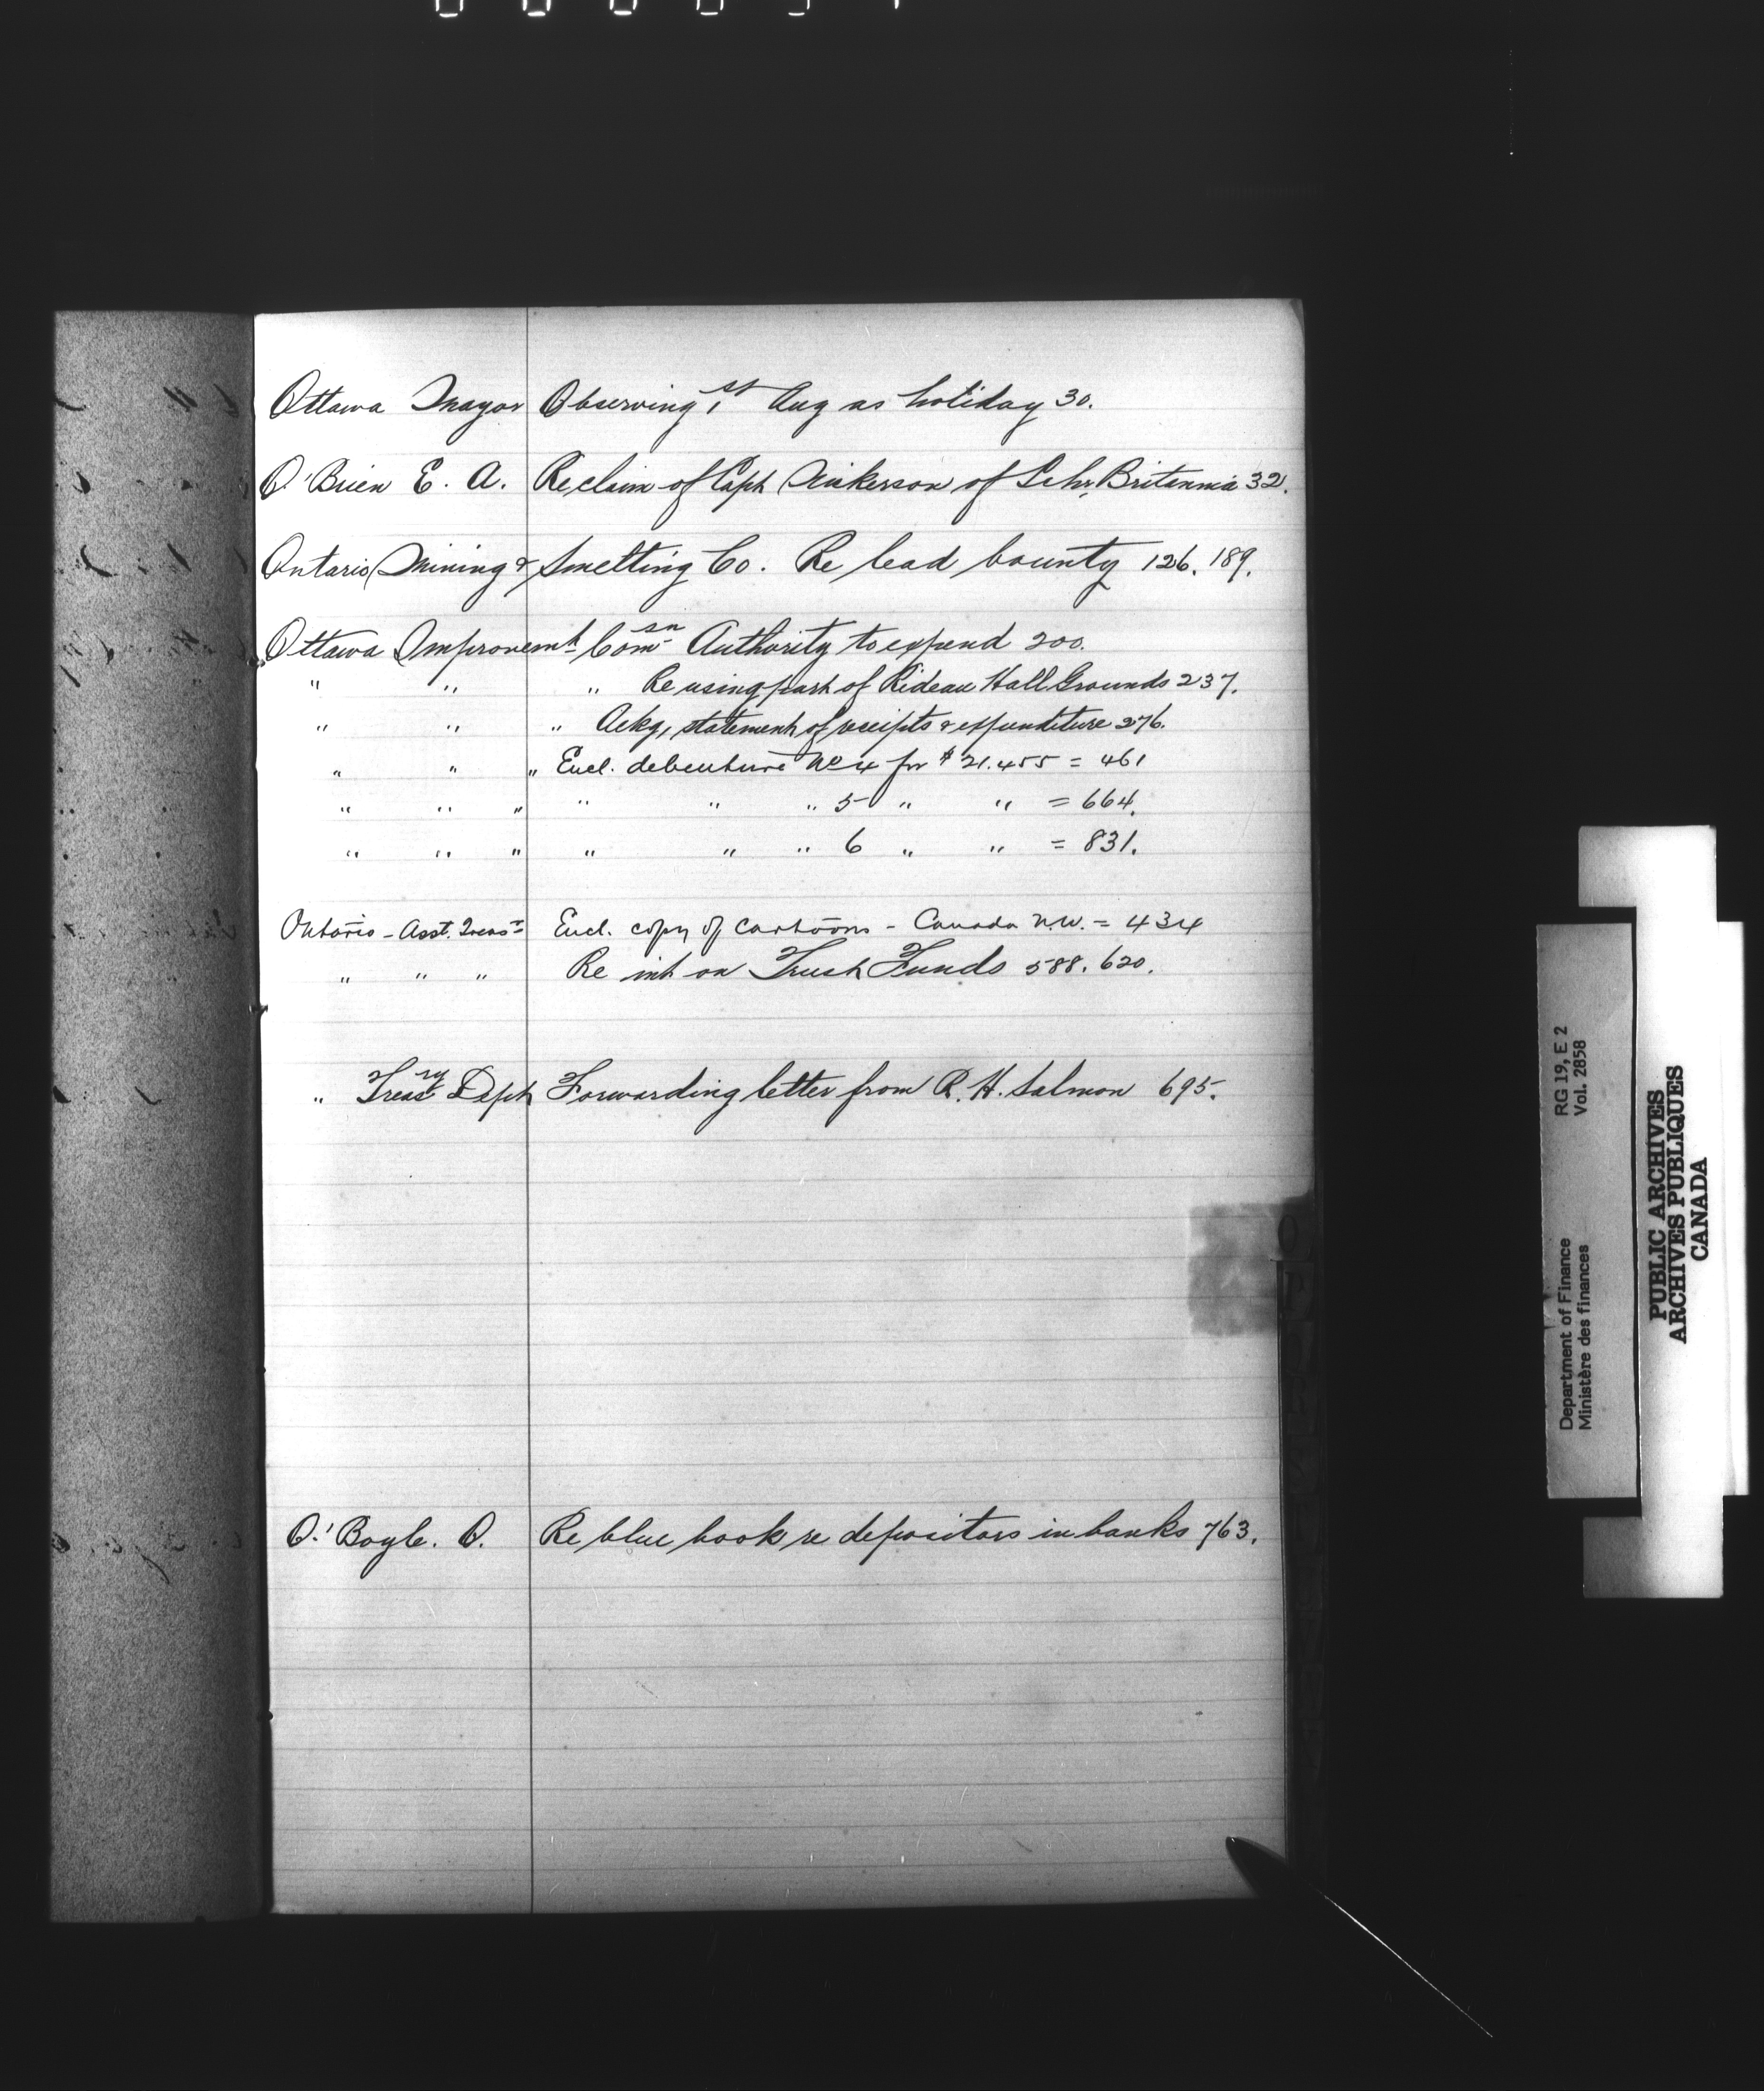 Ottawa Mayor Observing 1st Aug as holiday 30.
O'Brien E. A. Re claim of Capt Nickerson of Schr. Britannia 32.
Ontario Mining & Smelting Co. Re lead bounty 126. 189.
Ottawa Improvemt Comsn Authority to expend 200.
" " " Re using part of Rideau Hall Grounds 237.
" " " Ackg, statement of receipts & expenditure 276.
" " " Encl. debenture No 4 for $21.455 = 461
" " " " " " 5 " " = 664.
" " " " " " 6 " " = 831.
Ontario - Asst. Treasr Encl. copy of cartoons - Canada N.W. = 434
" " " Re int on Trust Funds 588. 620.
" Treasry Dept Forwarding letter from R. H. Salmon 695.
O'Boyle. O. Re blue book re depositors in banks 763.
O
P
RG 19, E 2
Vol. 2858
Department of Finance
Ministère des finances
PUBLIC ARCHIVES
ARCHIVES PUBLIQUES
CANADA